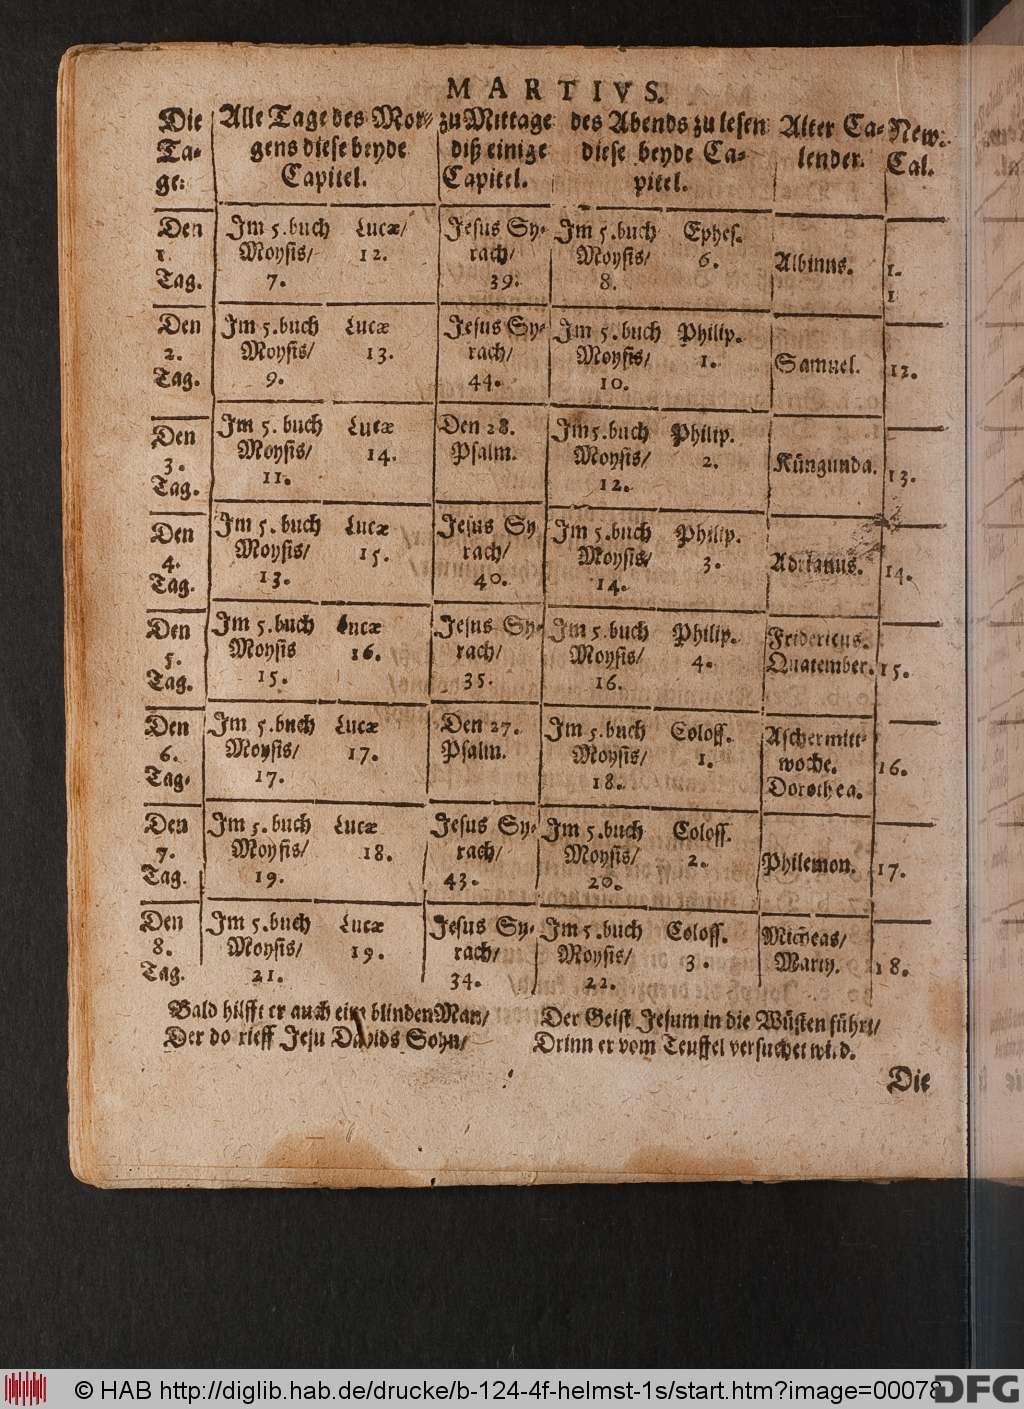 MARTIVS.
Die Alle Tage des Mor- zu Mittage des Abends zu lesen Alter Ca- New.
Ta- gens diese beyde diß einige diese beyde Ca- lender. Cal.
ge: Capitel. Capitel. pitel.
Den Im 5. buch Lucæ/ Jesus Sy- Im 5. buch Ephes.
1. Moysis/ 12. rach/ Moysis/ 6. Albinus. 1.
Tag. 7. 39. 8. 1
Den Im 5. buch Lucæ Jesus Sy- Im 5. buch Philip.
2. Moysis/ 13. rach/ Moysis/ 1. Samuel. 12.
Tag. 9. 44. 10.
Den Im 5. buch Lucæ Den 28. Im 5. buch Philip.
3. Moysis/ 14. Psalm. Moysis/ 2. Kůngunda. 13.
Tag. 11. 12.
Den Im 5. buch Lucæ Jesus Sy Im 5. buch Philip.
4. Moysis/ 15. rach/ Moysis/ 3. Adrianus. 14.
Tag. 13. 40. 14.
Den Im 5. buch Lucæ Jesus Sy- Im 5. buch Philip. Fridericus.
5. Moysis 16. rach/ Moysis/ 4. Quatember. 15.
Tag. 15. 35. 16.
Den Im 5. buch Lucæ Den 27. Im 5. buch Coloss. Aschermitt-
6. Moysis/ 17. Psalm. Moysis/ 1. woche. 16.
Tag. 17. 18. Dorothea.
Den Im 5. buch Lucæ Jesus Sy- Im 5. buch Coloss.
7. Moysis/ 18. rach/ Moysis/ 2. Philemon. 17.
Tag. 19. 43. 20.
Den Im 5. buch Lucæ Jesus Sy- Im 5. buch Coloss. Micheas/
8. Moysis/ 19. rach/ Moysis/ 3. Marty. 18.
Tag. 21. 34. 22.
Bald hilfft er auch eim blinden Man/ Der Geist Jesum in die Wüsten führt/
Der do rieff Jesu Davids Sohn/ Drinn er vom Teuffel versuchet wird.
Die
© HAB http://diglib.hab.de/drucke/b-124-4f-helmst-1s/start.htm?image=00078
DFG